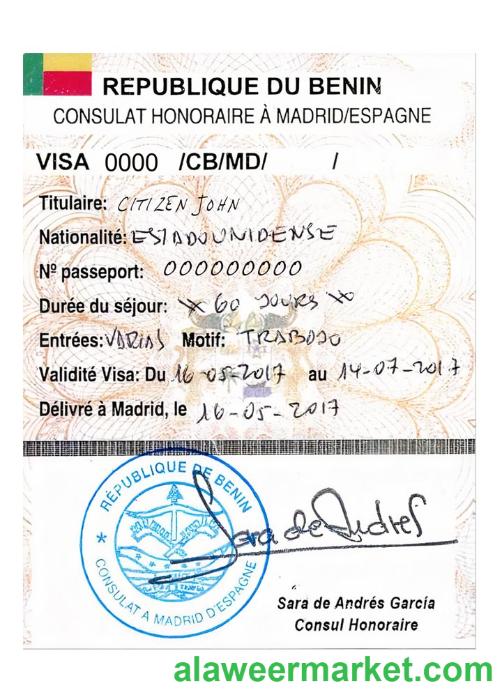 REPUBLIQUE DU BENIN
CONSULAT HONORAIRE À MADRID/ESPAGNE
VISA 0000 /CB/MD/ /
Titulaire: CITIZEN JOHN
Nationalité: ESTADOUNIDENSE
Nº passeport: 000000000
Durée du séjour: 60 JOURS
Entrées: VARIAS Motif: TRABAJO
Validité Visa: Du 16-05-2017 au 14-07-2017
Délivré à Madrid, le 16-05-2017
RÉPUBLIQUE DE BENIN
CONSULAT A MADRID D'ESPAGNE
Sara de Andrés
Sara de Andrés García
Consul Honoraire
alaweermarket.com